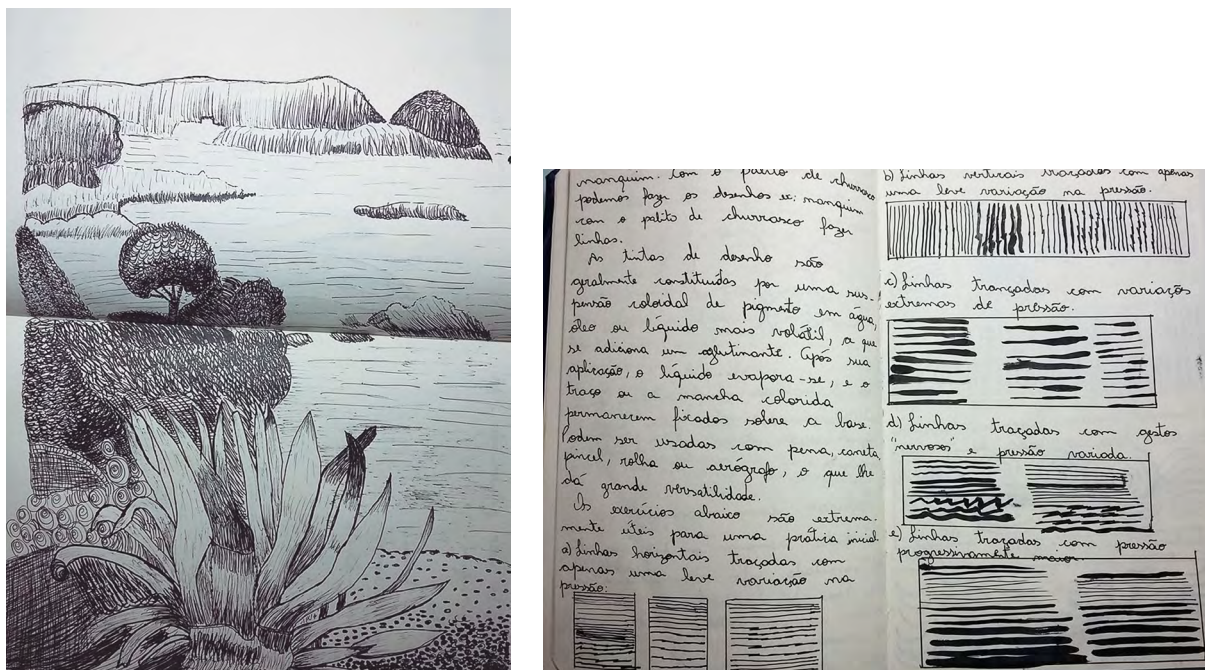 manquim. Com o palito de churrasco
podemos fazer os desenhos ex: manquim
com o palito de churrasco fazer
linhas.
As tintas de desenho são
geralmente constituídas por uma sus-
pensão coloidal de pigmento em água,
óleo ou líquido mais volátil, a que
se adiciona um aglutinante. Após sua
aplicação, o líquido evapora-se, e o
traço ou a mancha colorida
permanecem fixados sobre a base.
Podem ser usadas com pena, caneta,
pincel, rolha ou aerógrafo, o que lhe
dá grande versatilidade.
Os exercícios abaixo são extrema-
mente úteis para uma prática inicial
a) Linhas horizontais traçadas com
apenas uma leve variação na
pressão:
b) Linhas verticais traçadas com apenas
uma leve variação na pressão.
c) Linhas trançadas com variaçõs
extremas de pressão.
d) Linhas traçadas com gestos
"nervosos" e pressão variada.
e) Linhas traçadas com pressão
progressivamente maior